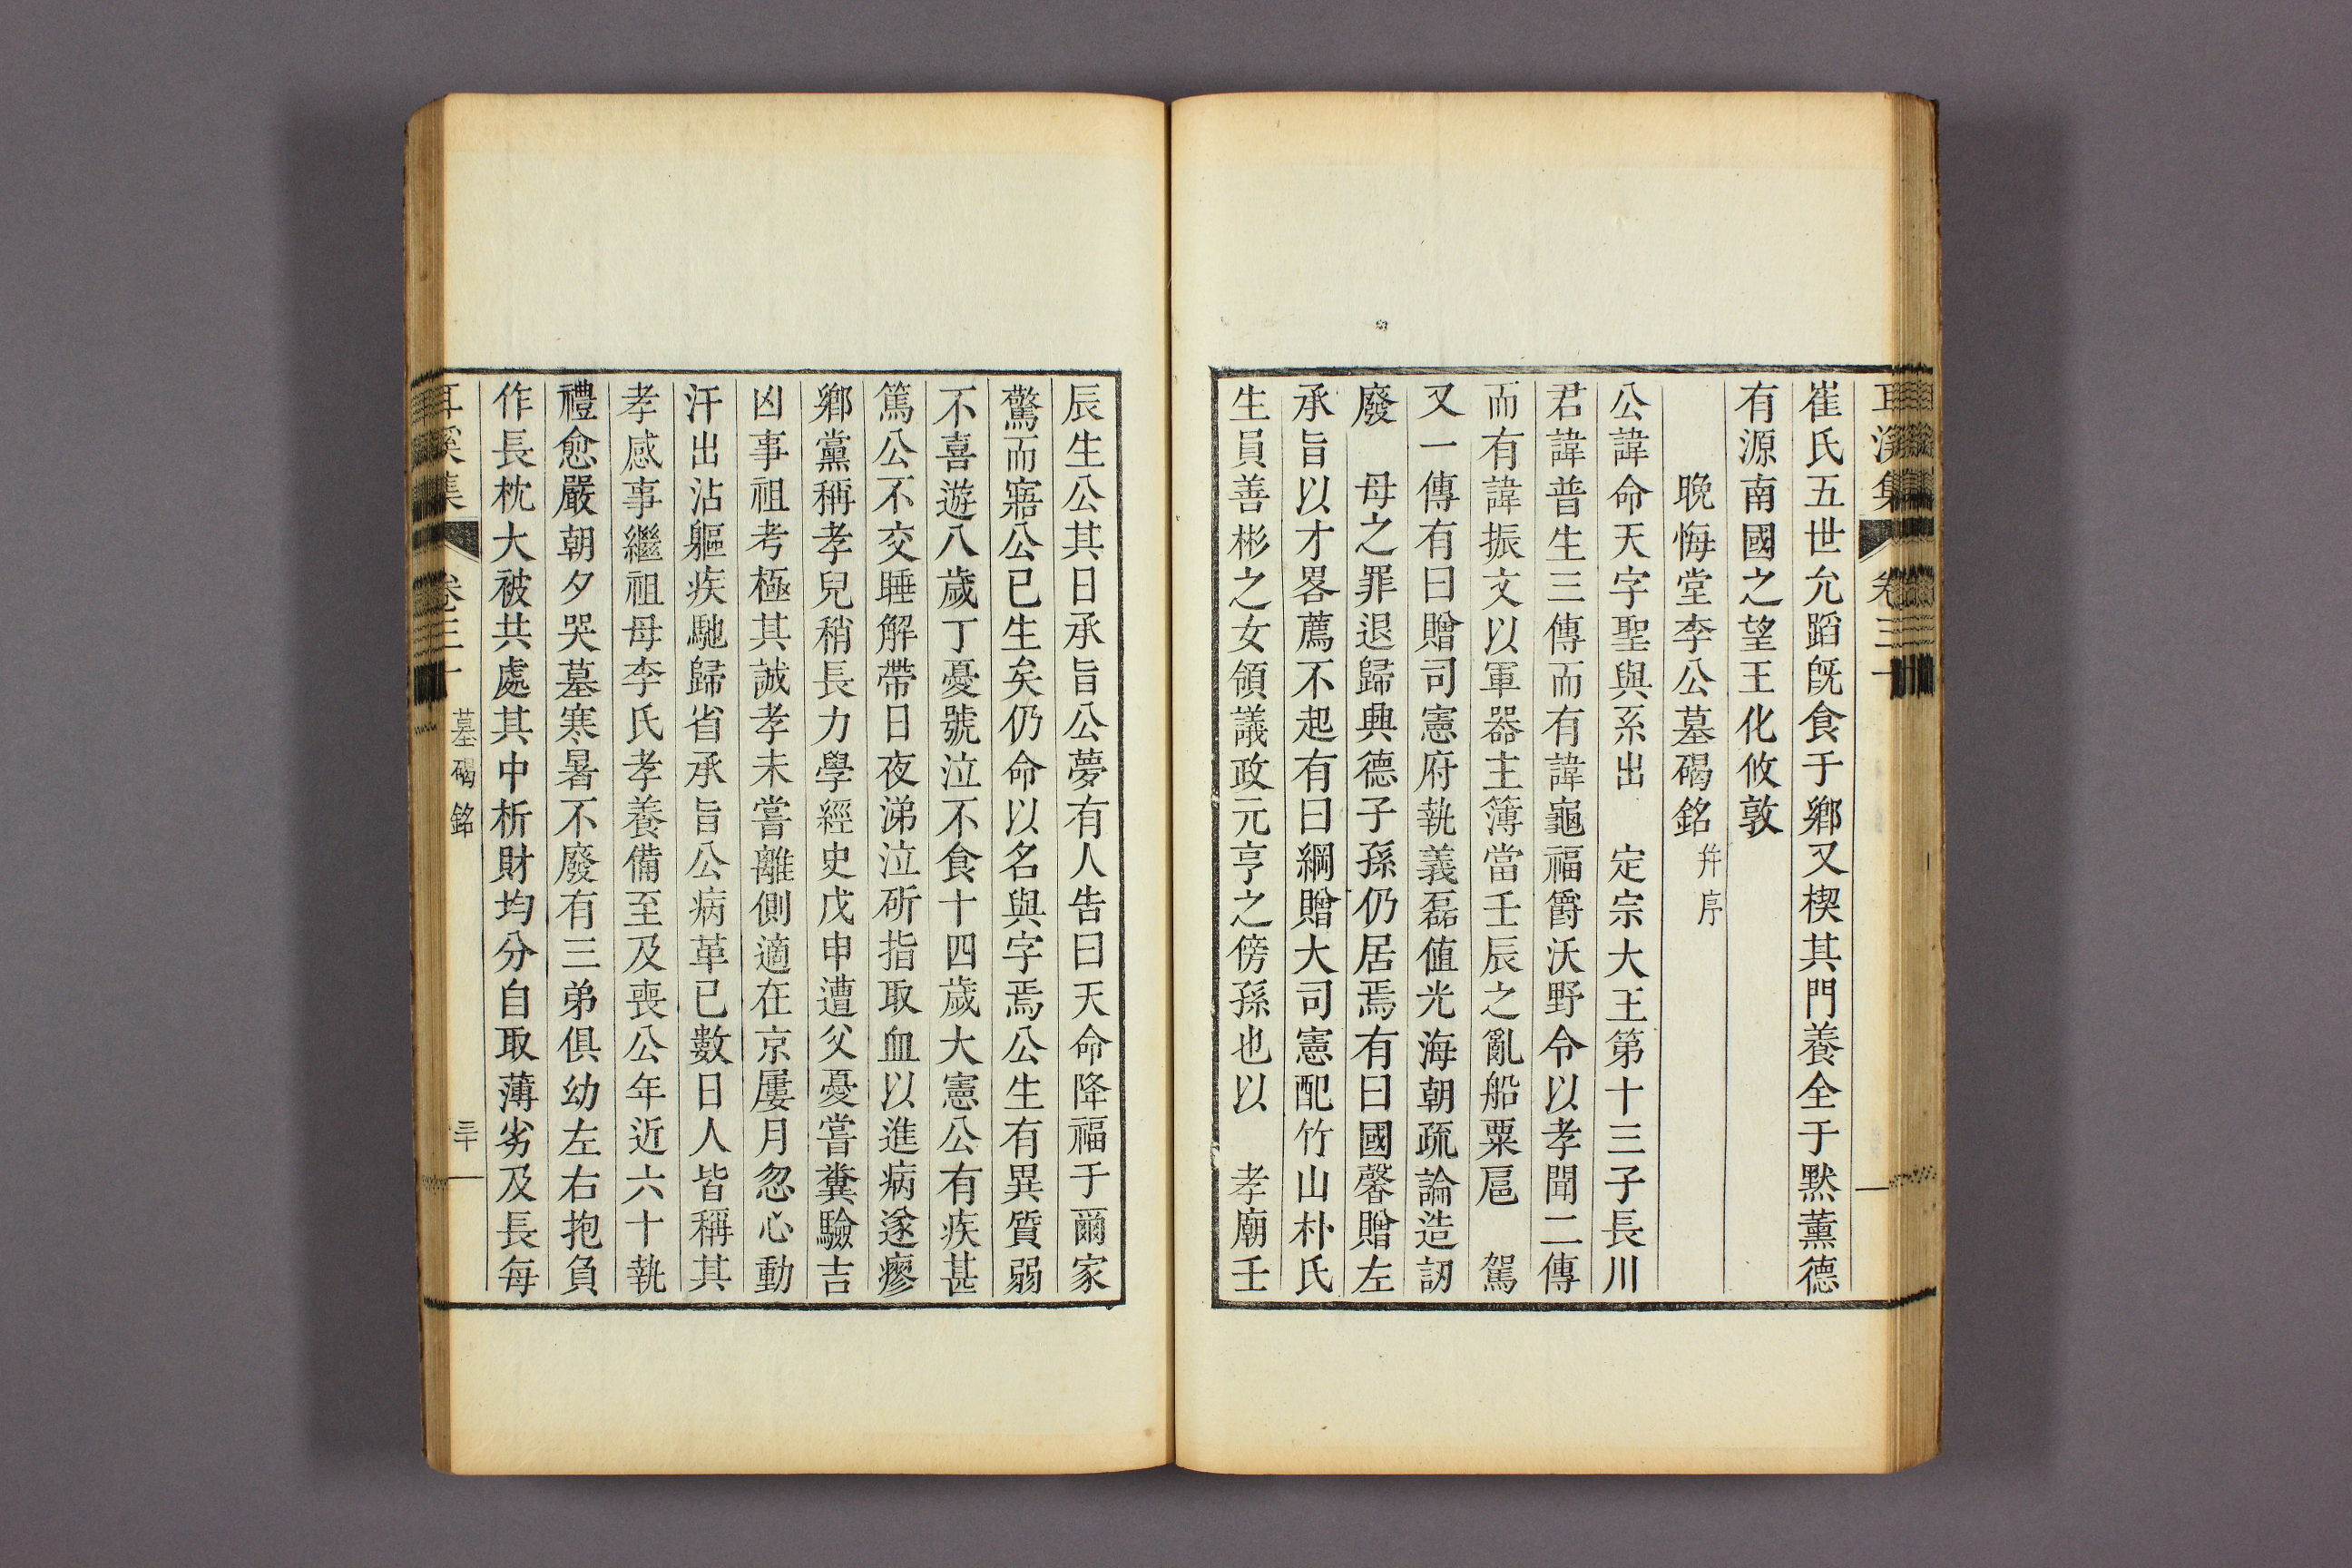 耳溪集 卷三十
崔氏五世允蹈旣食于鄕又楔其門養全于默薰德
有源南國之望王化攸敦
晚悔堂李公墓碣銘 幷序
公諱命天字聖與系出 定宗大王第十三子長川
君諱普生三傳而有諱龜福爵沃野令以孝聞二傳
而有諱振文以軍器主簿當壬辰之亂船粟扈 駕
又一傳有曰贈司憲府執義磊値光海朝疏論造訒
廢 母之罪退歸興德子孫仍居焉有曰國馨贈左
承旨以才畧薦不起有曰綱贈大司憲配竹山朴氏
生員善彬之女領議政元亨之傍孫也以 孝廟壬
辰生公其日承旨公夢有人告曰天命降福于爾家
驚而寤公已生矣仍命以名與字焉公生有異質弱
不喜遊八歲丁憂號泣不食十四歲大憲公有疾甚
篤公不交睡解帶日夜涕泣斫指取血以進病遂瘳
鄕黨稱孝兒稍長力學經史戊申遭父憂嘗糞驗吉
凶事祖考極其誠孝未嘗離側適在京屢月忽心動
汗出沾軀疾馳歸省承旨公病革已數日人皆稱其
孝感事繼祖母李氏孝養備至及喪公年近六十執
禮愈嚴朝夕哭墓寒暑不廢有三弟俱幼左右抱負
作長枕大被共處其中析財均分自取薄劣及長每
耳溪集 卷三十 墓碣銘 三十